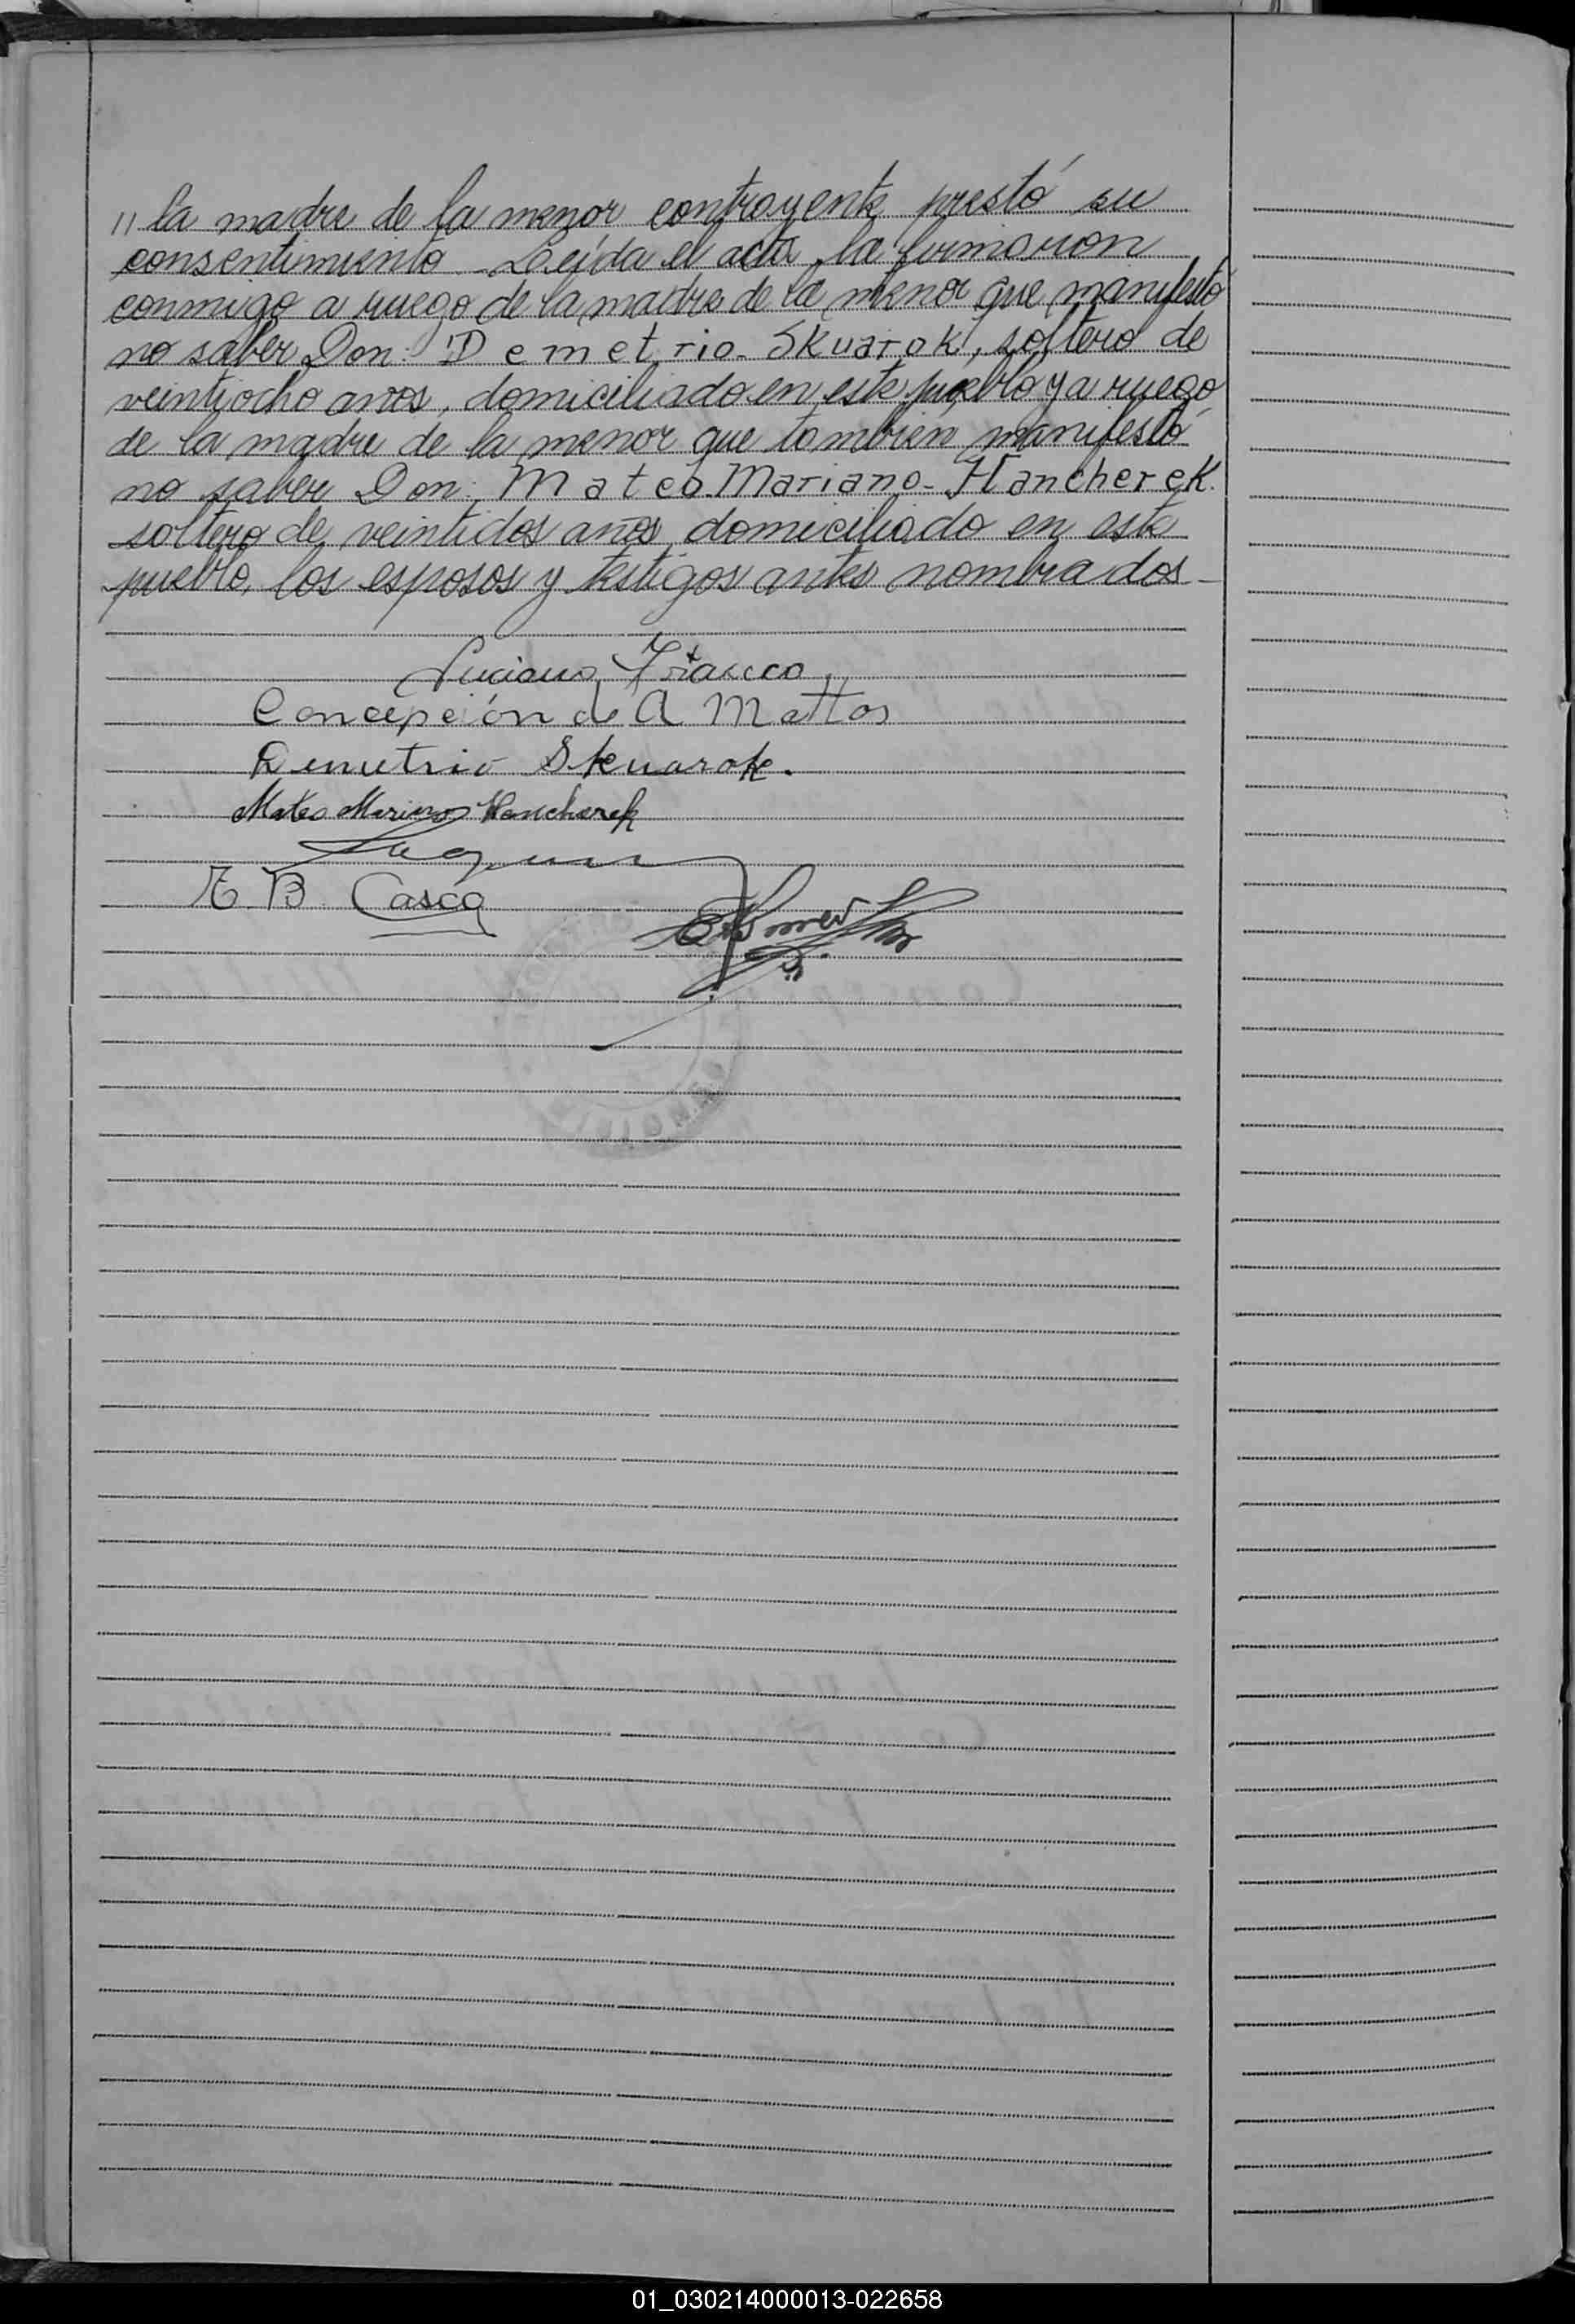 " la madre de la menor contrayente prestó su
consentimiento - Leída el acta, la firmaron
conmigo a ruego de la madre de la menor que manifestó
no saber Don: Demetrio - Skuarok, soltero de
veintiocho años, domiciliado en este pueblo y a ruego
de la madre de la menor que tambien manifestó
no saber Don: Mateo - Mariano - Hancherek.
soltero de veintidos años domiciliado en este
pueblo, los esposos y testigos antes nombrados -
Luciano
Concepción de A Mattos
Demetrio Skuarok.
Mateo Mariano Hancherek
E. B. Casco
01_030214000013-022658